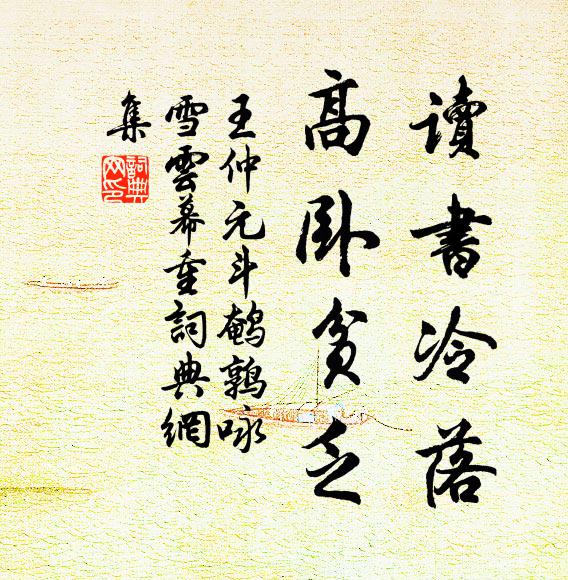 讀書冷落
高臥貧乏
王仲元斗鵪鶉咏
雪雲幕重詞典網
集
詞典网印